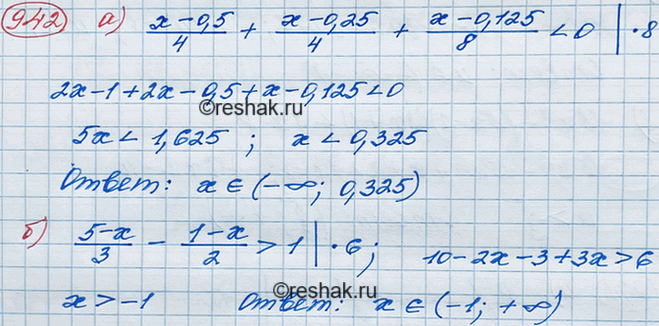 942 а) (x-0,5)/4 + (x-0,25)/4 + (x-0,125)/8 < 0 | ·8
2x-1+2x-0,5+x-0,125<0
©reshak.ru
5x < 1,625 ; x < 0,325
Ответ: x ∈ (-∞; 0,325)
б) (5-x)/3 - (1-x)/2 > 1 | ·6 ; 10-2x-3+3x>6
©reshak.ru
x > -1 Ответ: x ∈ (-1; +∞)